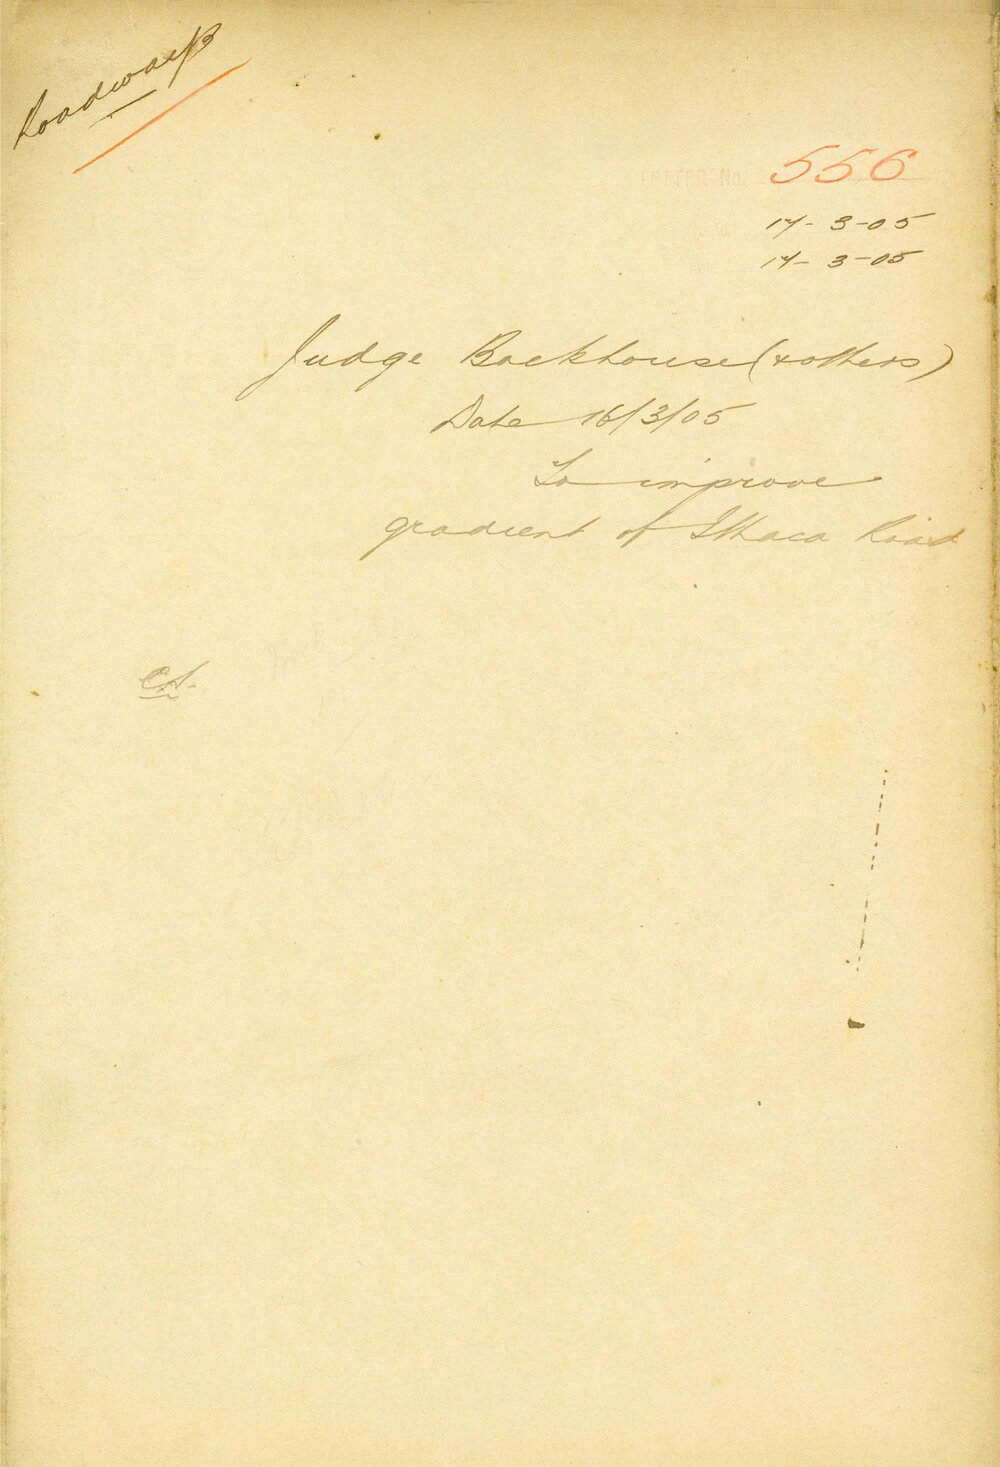 Roadways
LETTER No. 556
17-3-05
17-3-05
Judge Backhouse (& others)
Date 16/3/05
To improve
gradient of Ithaca Road